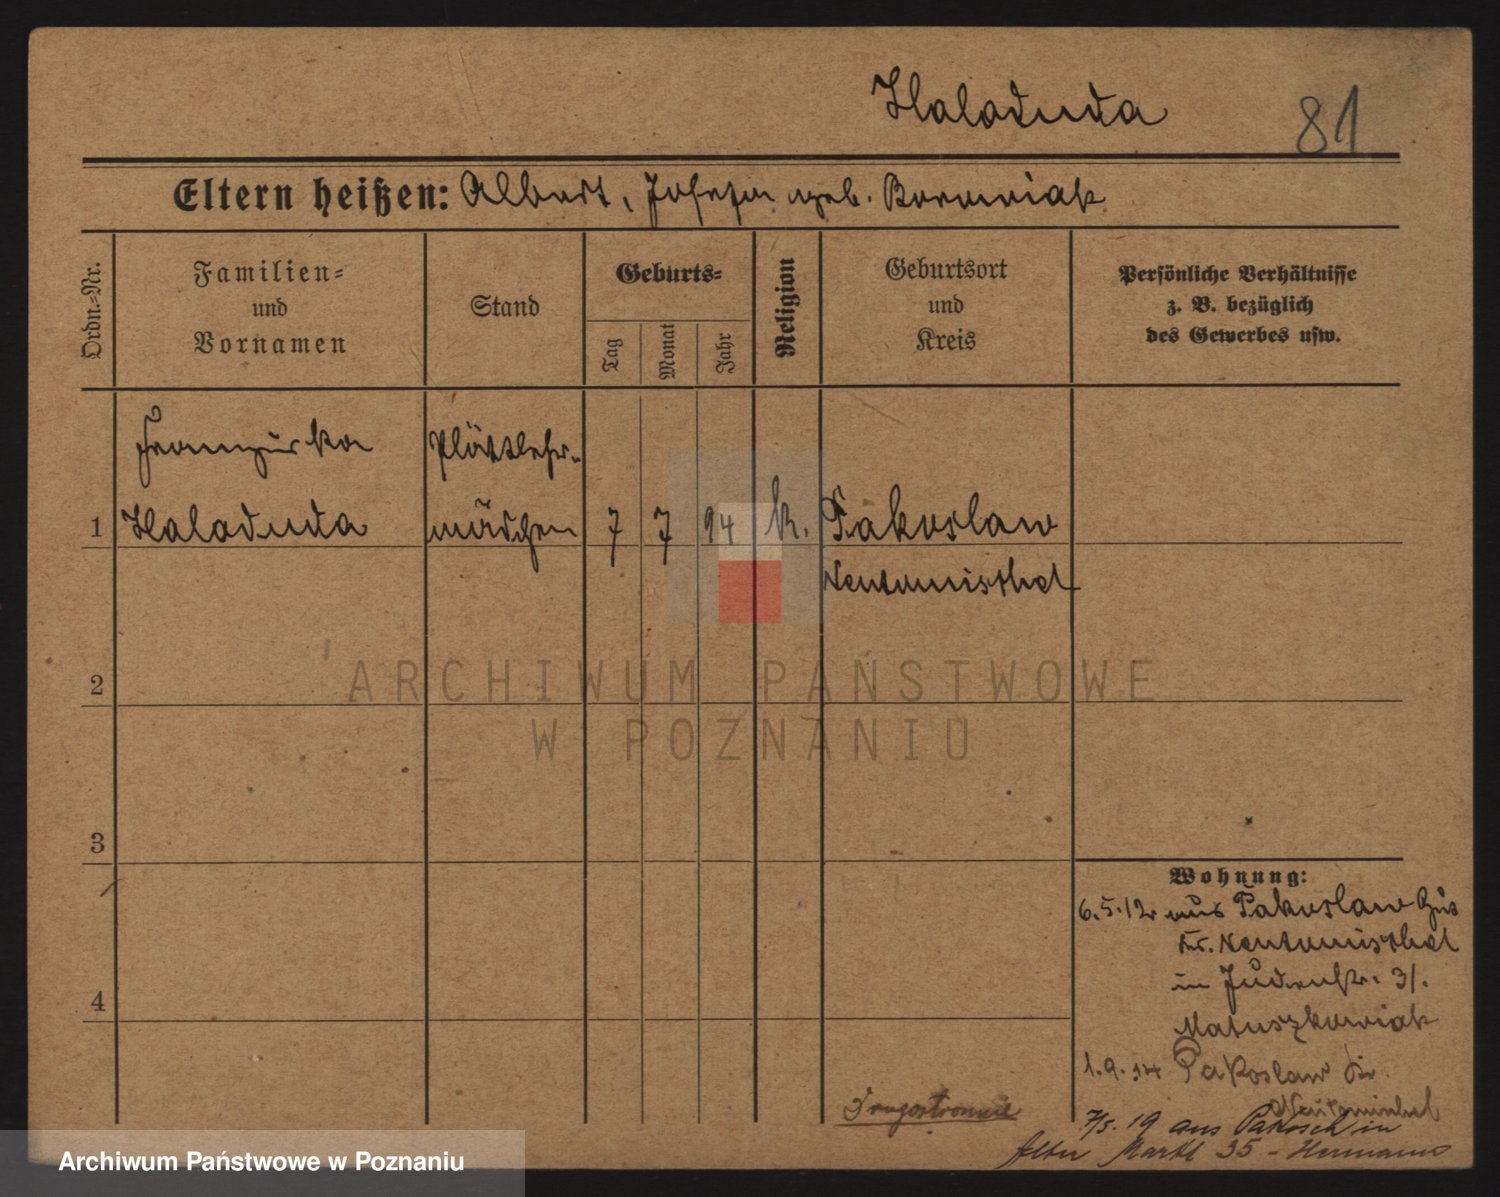 Haladuda
81
Eltern heißen: Albert, Josefa geb. Borowiak
Ordn.-Nr.
Familien-
und
Vornamen
Stand
Geburts-
Tag
Monat
Jahr
Religion
Geburtsort
und
Kreis
Persönliche Verhältnisse
z. B. bezüglich
des Gewerbes usw.
Franziska
Plättlehr-
1 Haladuda
mädchen
7 7 94 k. Pakoslaw
Neutomischel
ARCHIWUM PAŃSTWOWE
W POZNANIU
2
3
4
Wohnung:
6.5.12 aus Pakoslaw Gut
Kr. Neutomischel
in Judenstr. 31.
Matuszkowiak
1.9.14 Pakoslaw Kr.
Neutomischel
7/5.19 aus in
Alter Markt 35 - Hermanns
Archiwum Państwowe w Poznaniu